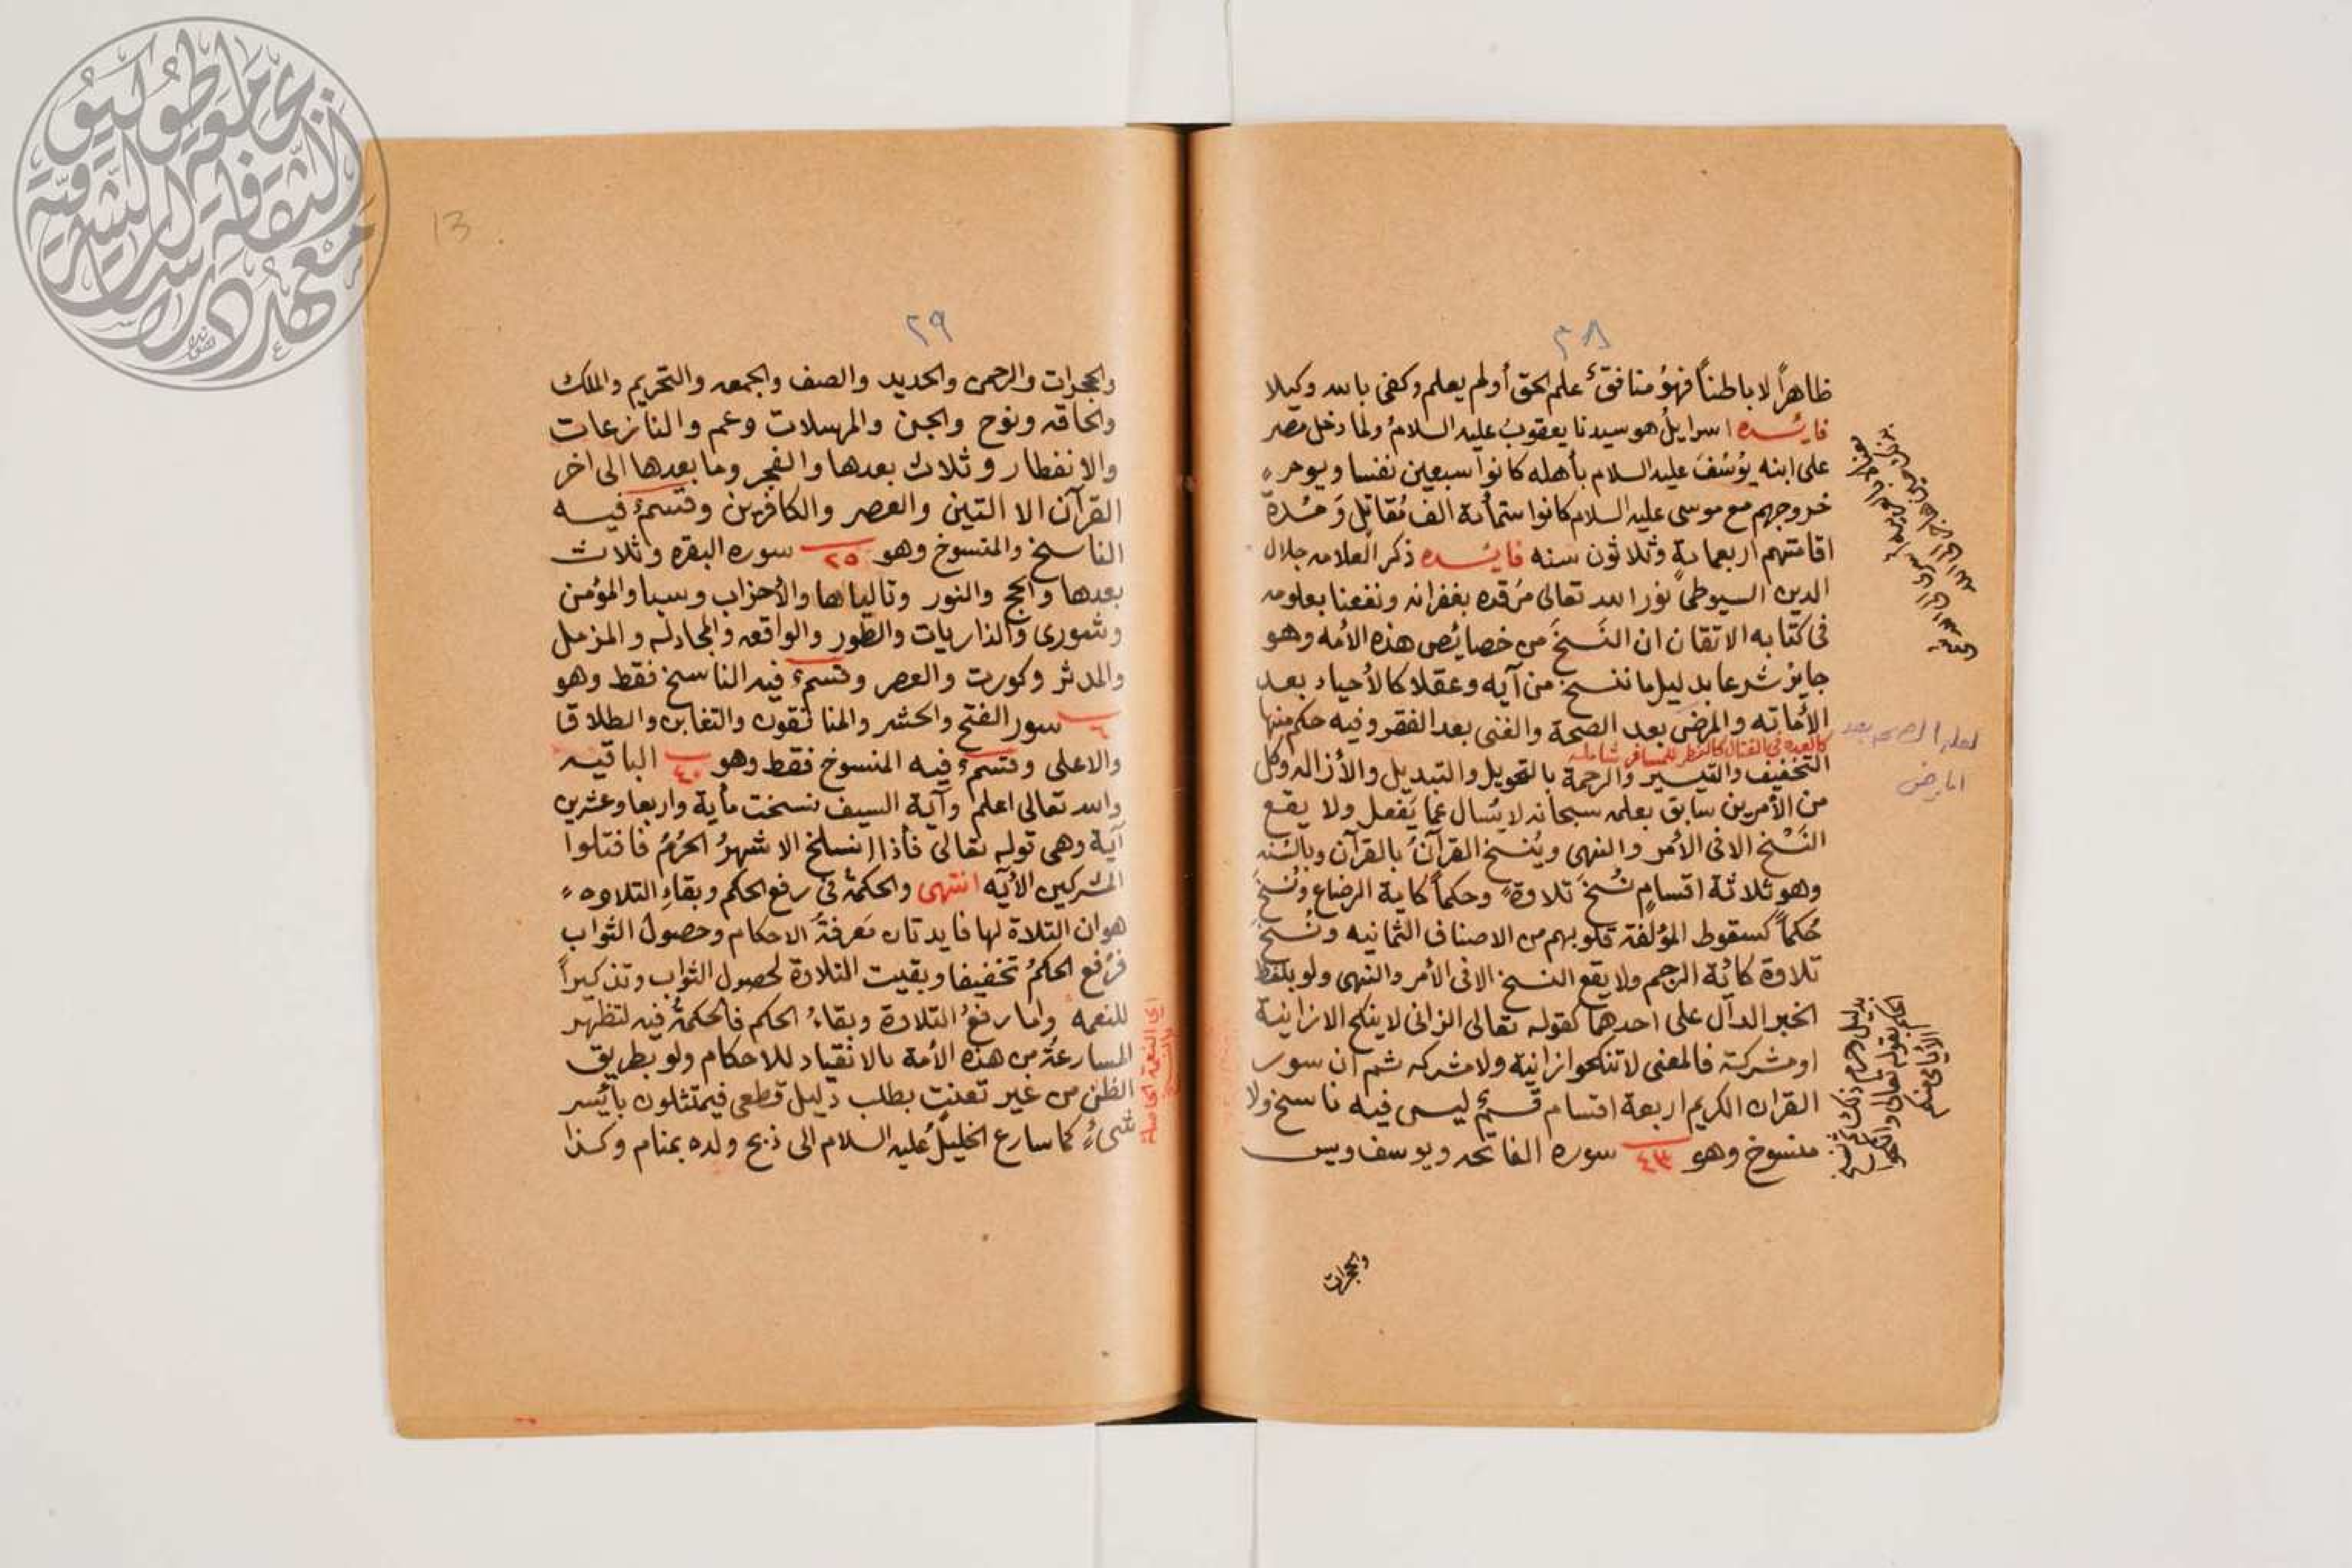 ٢٨
ظاهراً لا باطناً فهوُ منافقٌ علم الحق أو لم يعلم وكفى بالله وكيلا
فائده اسرايلُ هو سيدنا يعقوبُ عليه السلامُ ولما دخل مصر
على ابنه يُوسُفَ عليه السلام بأهله كانوا سبعين نفسا ويوم
خروجهم مع موسى عليه السلام كانوا ستمأية الف مُقاتِل وَمُدة
اقامتهم اربعماية وثلاثون سنه فائده ذكر العلامه جلال
الدين السيوطى نور الله تعالى مرقده بغفرانه ونفعنا بعلومه
فى كتابه الاتقان ان النَسخَ من خصائص هذه الأمه وهو
جايز شرعا بدليل ما ننسخ من آيه وعقلا كالأحياء بعد
الأماته والمرض بعد الصحة والغنى بعد الفقر وفيه حكم منها
التخفيف والتيسير والرحمة بالتحويل والتبديل والأزاله وكل
من الأمرين سابق بعلمه سبحانه لا يُسال عما يَفعل ولا يقع
النَسْخ الا فى الأمر والنهى ويُنسخ القرآنُ بالقرآن وبالسنه
وهو ثلاثة اقسامٍ نُسخَ تلاوةً وحكماً كاية الرضاع ونُسخَ
حُكماً كسقوط المؤلفة قلوبهم من الاصناف الثمانيه ونُسخَ
تلاوة كائة الرجم ولا يقع النسخ الا فى الأمر والنهى ولو بلفظ
الخبر الدآل على احدهما كقوله تعالى الزانى لا ينكح الا زانية
او مشركة فالمعنى لا تنكحوا زانية ولا مشركه ثم ان سور
القران الكريم اربعة اقسام قسمٌ ليس فيه ناسخ ولا
منسوخ وهو ٤٣ سوره الفاتحه ويوسف ويس
والحجرات
لعله الصحه بعد
المرض
٢٩
13
والحجرات والرحمن والحديد والصف والجمعه والتحريم والملك
والحاقه ونوح والجن والمرسلات وعم والنازعات
والانفطار وثلاث بعدها والفجر وما بعدها الى اخر
القرآن الا التين والعصر والكافرين وقسمٌ فيه
الناسخ والمنسوخ وهو ٢٥ سوره البقره وثلاث
بعدها والحج والنور وتالياها والأحزاب وسبا والمؤمن
وشورى والذاريات والطور والواقعه والمجادله والمزمل
والمدثر وكورت والعصر وقسمٌ فيه الناسخ فقط وهو
٦ سور الفتح والحشر والمنافقون والتغابن والطلاق
والاعلى وقسمٌ فيه المنسوخ فقط وهو ٤٠ الباقيه
والله تعالى اعلم وآية السيف نسخت مأية واربعا وعشرين
آية وهى قوله تعالى فأذا انسلخ الاشهرُ الحُرُمُ فاقتلوا
المشركين الأيه انتهى والحكمة فى رفع الحكم وبقاءِ التلاوه
هو ان التلاة لها فايدتان مَعرفةُ الاحكام وحصول الثواب
فرُفع الحكمُ تخفيفا وبقيت التلاوة لحصول الثواب وتذكيراً
للنعمه وأما رفعُ التلاوة وبقاءُ الحكم فالحكمةُ فيه لتظهر
المسارعةُ من هذه الأمة بالانقياد للاحكام ولو بطريق
الظن من غير تعنتٍ بطلب دليل قطعى فيمتثلون بأئسر
شىءٍ كما سارع الخليلُ عليه السلام الى ذبح ولده بمنام وكذا